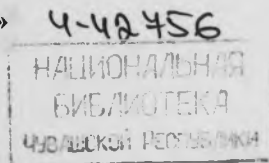 » Ч-42756
НАЦИОНАЛЬНАЯ
БИБЛИОТЕКА
ЧУВАШСКОЙ РЕСПУБЛИКИ